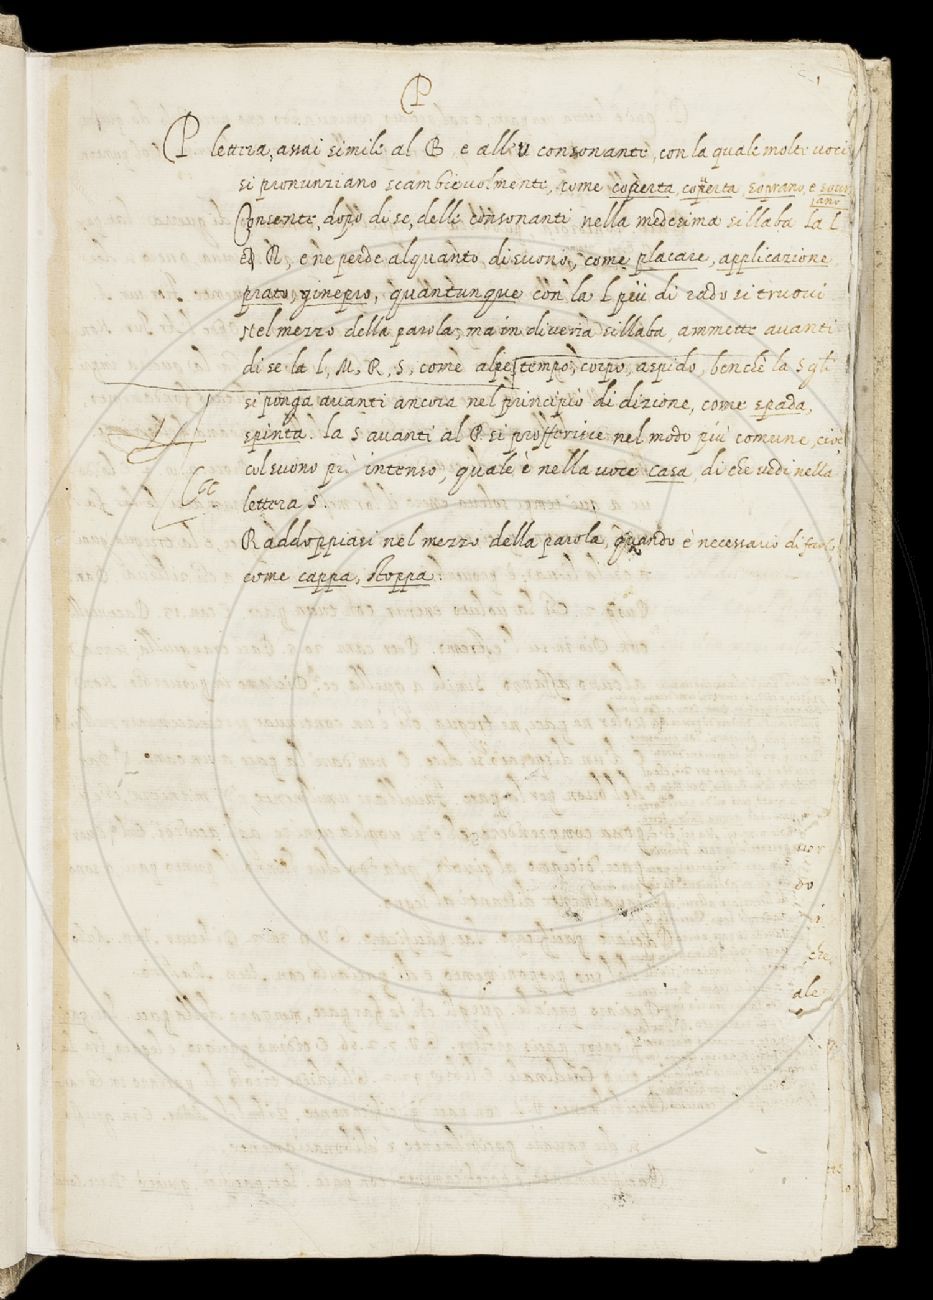 P
P lettera, assai simile al B, e all'V consonante, con la quale molte voci
si pronunziano scambievolmente, come coperta, couerta soprano, e sour
ano
Consente, dopo di se, delle consonanti nella medesima sillaba la L
et R, e ne perde alquanto di suono, come placare, applicazione,
prato, ginepro, quantunque con la L più di rado si truovi
Nel mezzo della parola, ma in diversa sillaba, ammette avanti
di se la L, M, R, S, come alpe, tempo, corpo, aspido, benchè la S gli
si ponga avanti ancora nel principio di dizione, come spada,
spinta. la S avanti al P si profferisce nel modo più comune, cioè
col suono più intenso, quale è nella voce casa, di che vedi nella
lettera S.
Raddoppiasi nel mezzo della parola, quando è necessario di farlo,
come cappa, stoppa.
do
che
ale